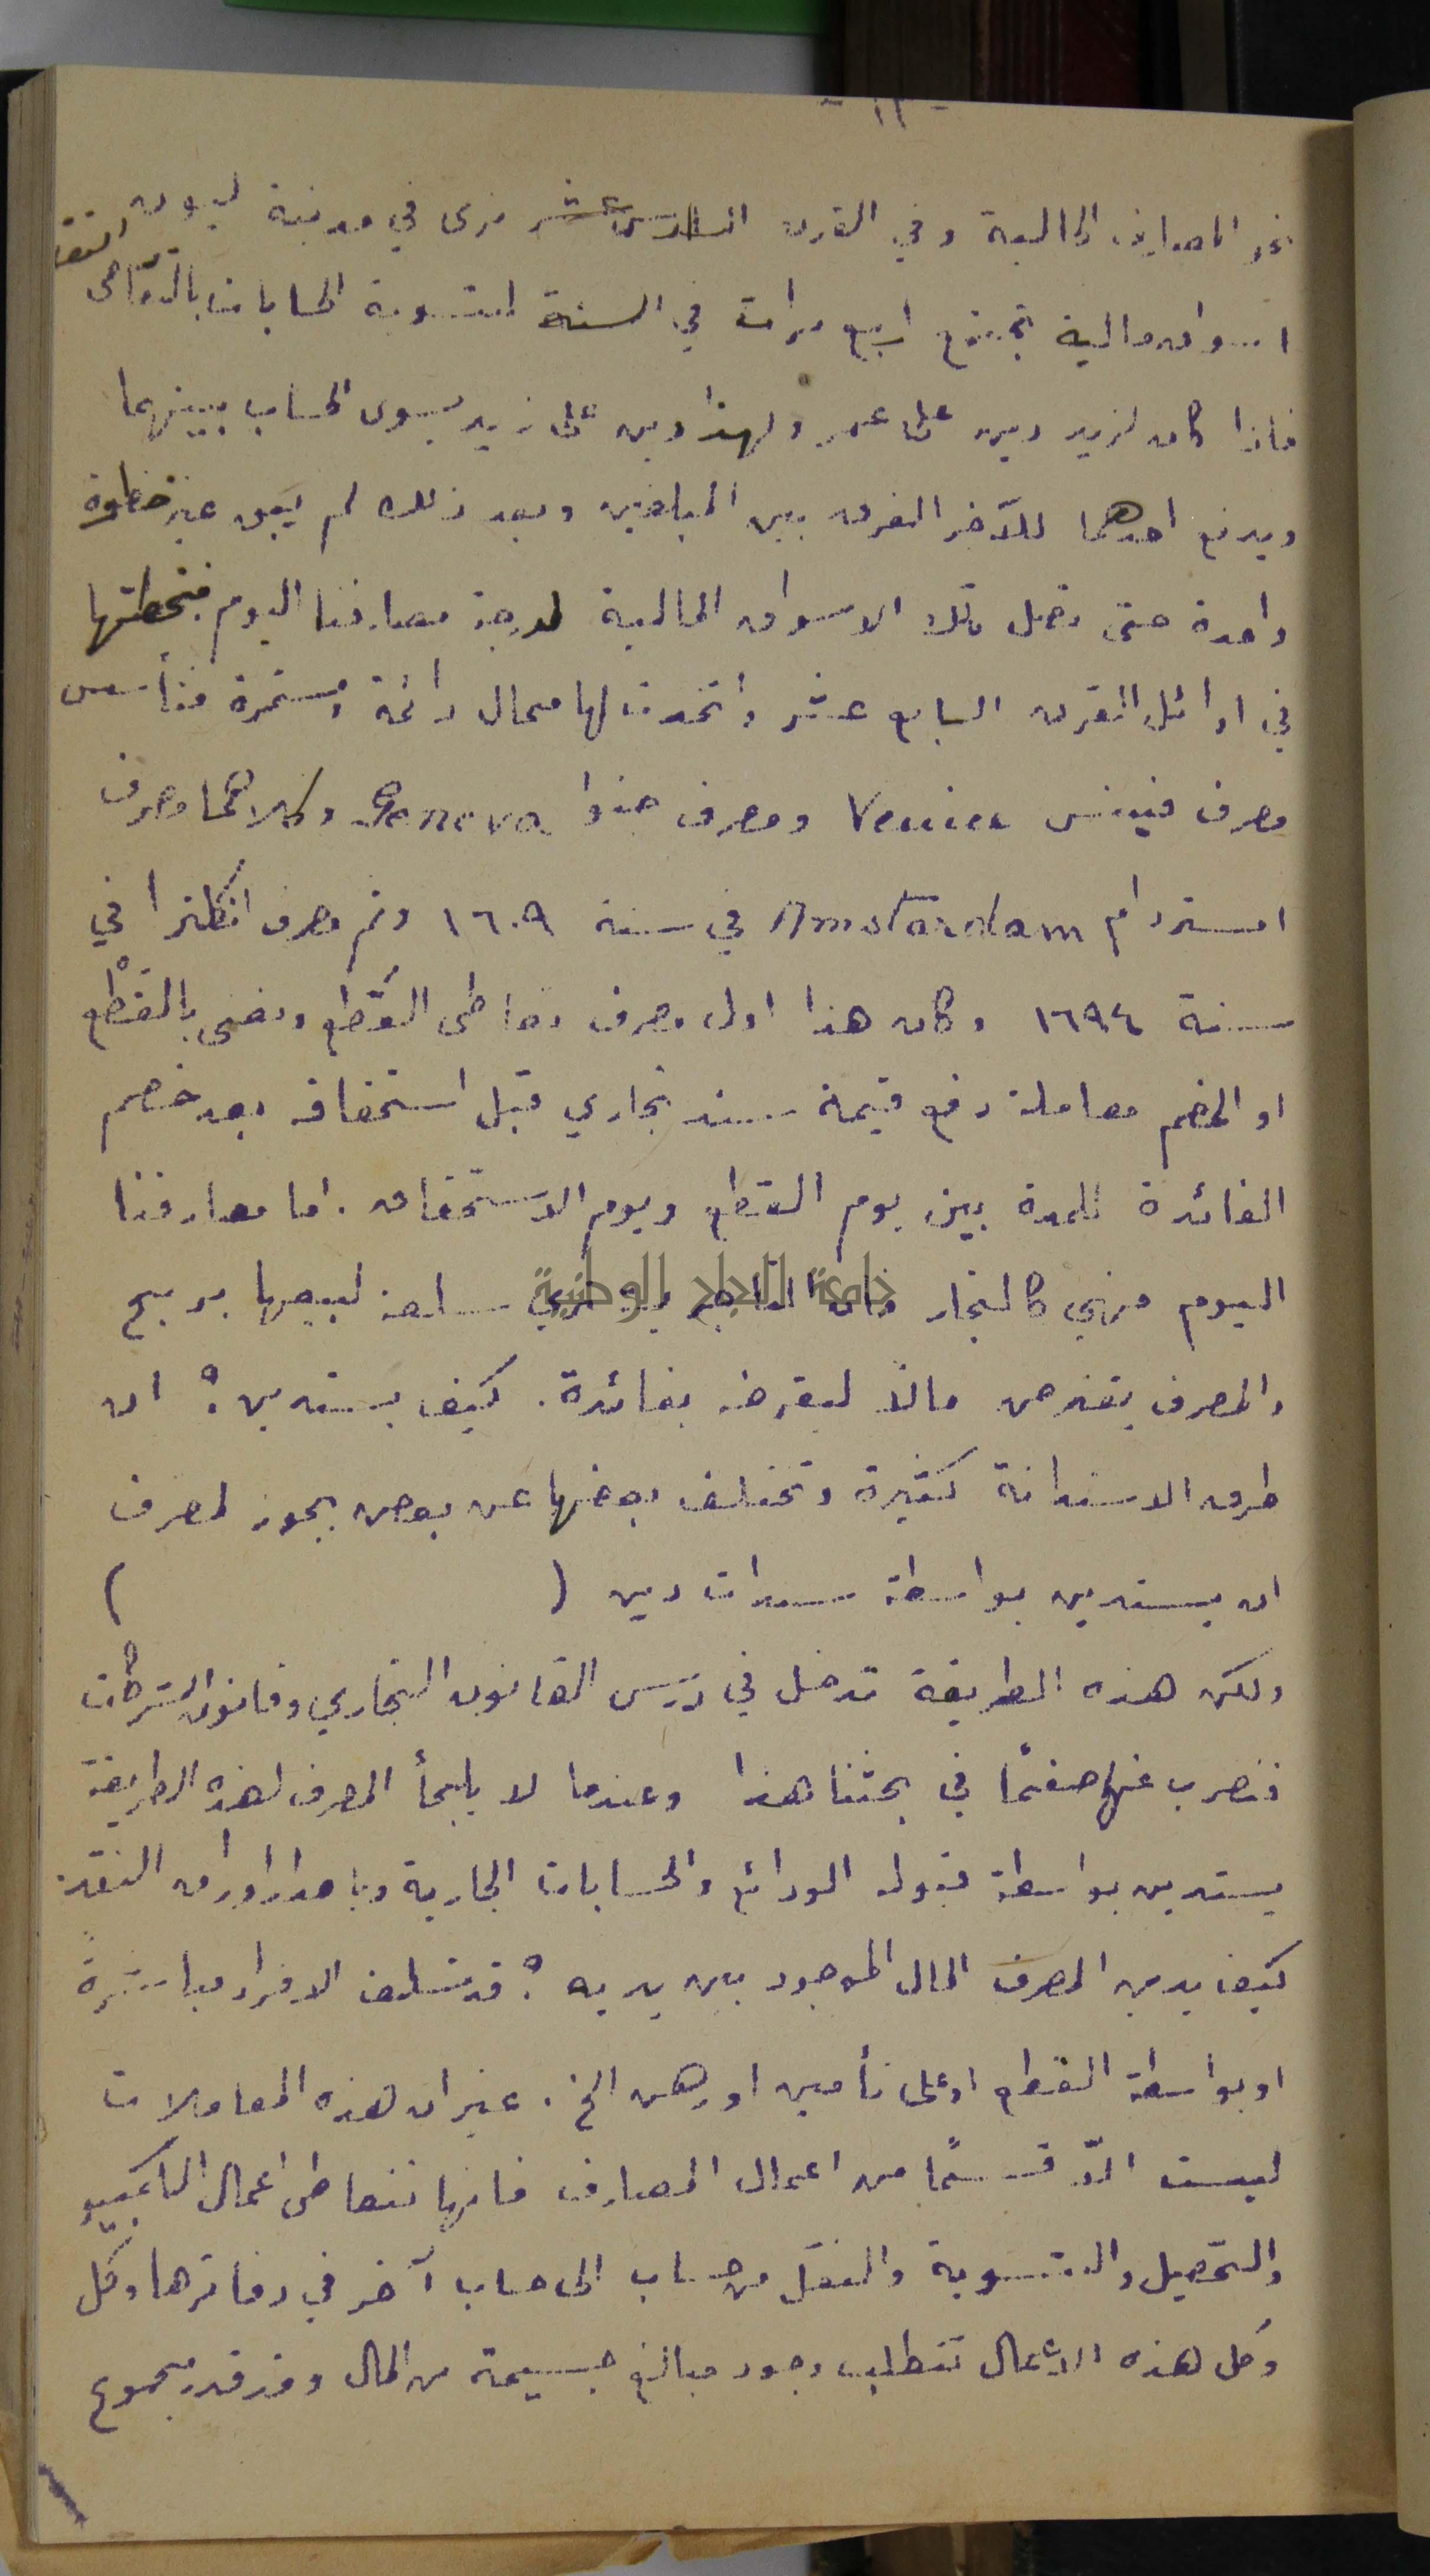 - ١٢ -
نحو المصارف الحالية وفي القرن السادس عشر نرى في مدينة ليون
اسواق مالية تجتمع اربع مرات في السنة لتسوية الحسابات بالتقاص
فاذا كان لزيد دين على عمر ولهذا دين على زيد يسوى الحساب بينهما
ويدفع احدهما للآخر الفرق بين المبلغين وبعد ذلك لم يبق غير خطوة
واحدة حتى تصل تلك الاسواق المالية لدرجة مصارفنا اليوم فخطتها
في اوائل القرن السابع عشر واتخذت لها محال دائمة ومستمرة فتأسس
مصرف فينس Venice ومصرف جنوا Geneva وكلاهما ومصرف
امستردام Amstardam في سنة ١٦٠٩ وثم مصرف انكلترا في
سنة ١٦٩٤ وكان هذا اول مصرف تعاطى القَطع ونعني بالقَطْع
او الخصم معاملة دفع قيمة سند تجاري قبل استحقاقه بعد خصم
الفائدة للمدة بين يوم القطع ويوم الاستحقاق . اما مصارفنا
اليوم فهي كالتجار فان التاجر يشتري سلعة ليبيعها بربح
والمصرف يقترض مالاً ليقرضه بفائدة . كيف يستدين ؟ ان
طرق الاستدانة كثيرة وتختلف بعضها عن بعض يجوز لمصرف
ان يستدين بواسطة سندات دين ( )
ولكن هذه الطريقة تدخل في درس القانون التجاري وقانون الشركات
فنضرب عنها صفحًا في بحثنا هذا وعندما لا يلجأ المصرف لهذه الطريقة
يستدين بواسطة قبوله الودائع والحسابات الجارية وباصدار اوراق النقد .
كيف يدين المصرف المال الموجود بين يديه ؟ قد يسلف الافراد مباشرةً
او بواسطة القطع او على تأمين او رهن الخ . غير ان هذه المعاملات
ليست الاّ قسمًا من اعمال المصارف فانها تتعاطى اعمال الكمبيو
والتحصيل والتسوية والنقل من حساب الى حساب آخر في دفاترها وكل
وكل هذه الاعمال تتطلب وجود مبالغ جسيمة من المال وقد قدر مجموع
جامعة النجاح الوطنية